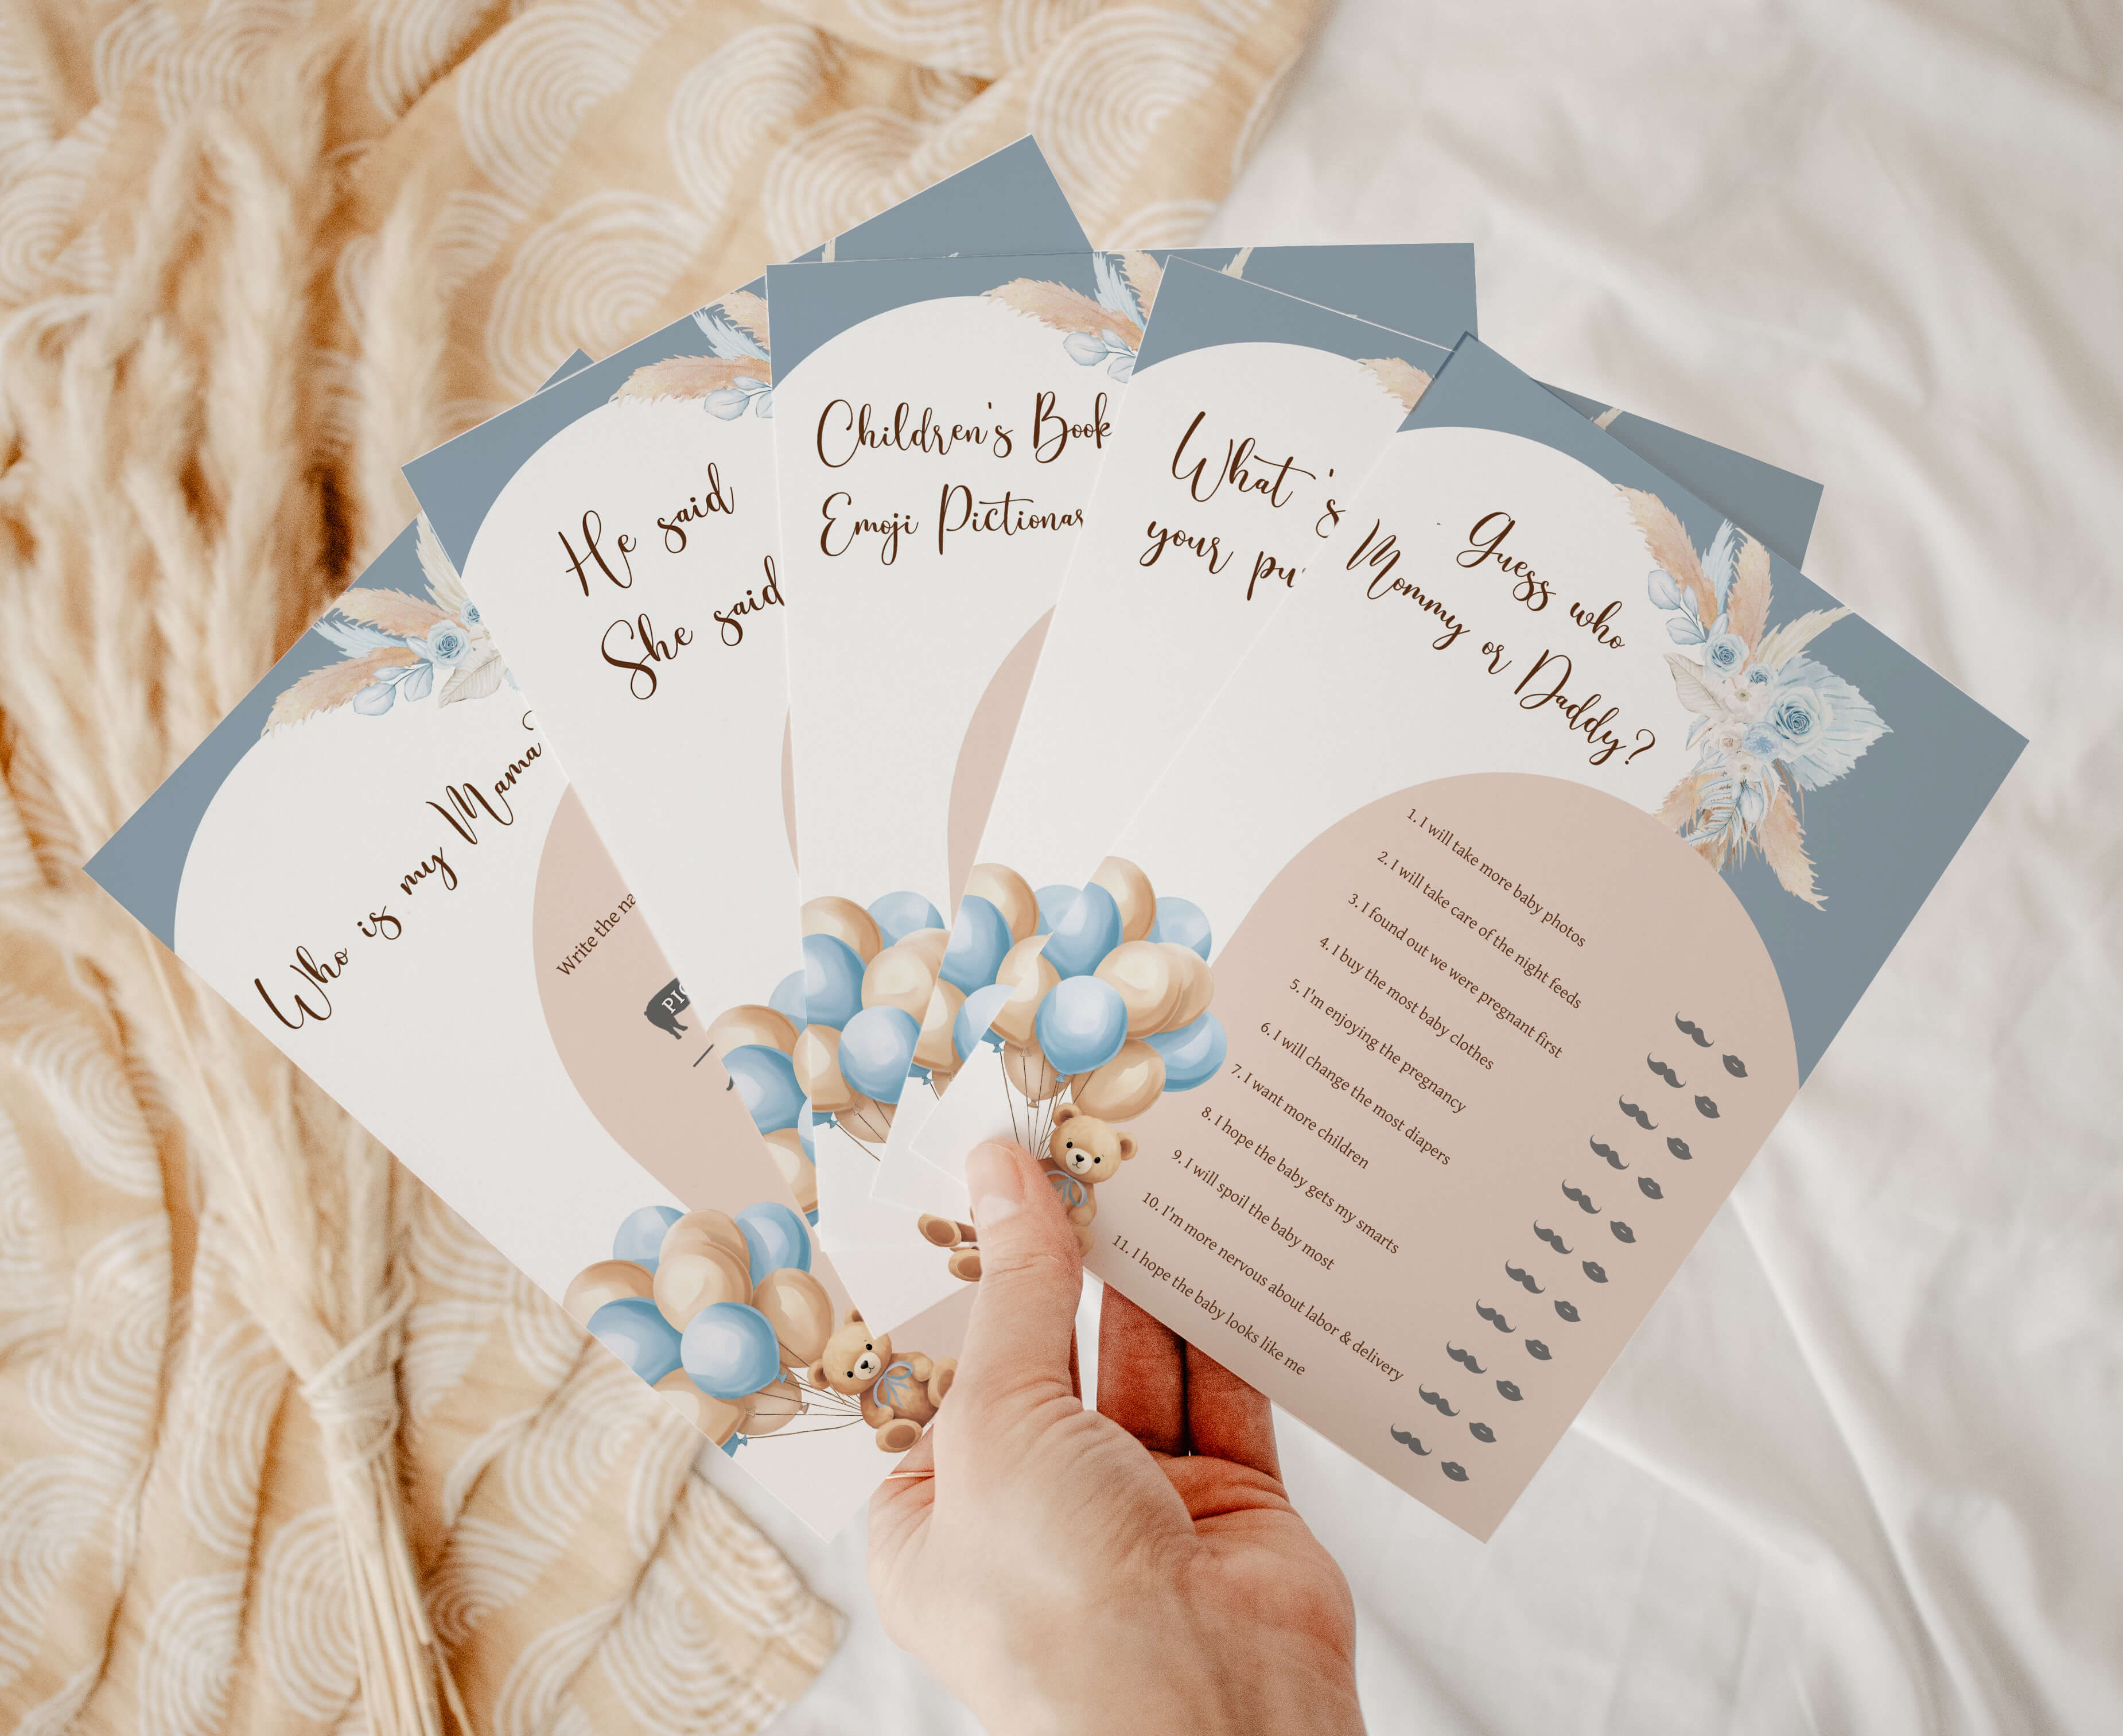 Who is my Mama
Write the
He said
She said
Children's Book
Emoji
What 's
your
Guess who
Mommy or Daddy?
1. I will take more baby photos
2. I will take care of the night feeds
3. I found out we were pregnant first
4. I buy the most baby clothes
5. I'm enjoying the pregnancy
6. I will change the most diapers
7. I want more children
8. I hope the baby gets my smarts
9. I will spoil the baby most
10. I'm more nervous about labor & delivery
11. I hope the baby looks like me